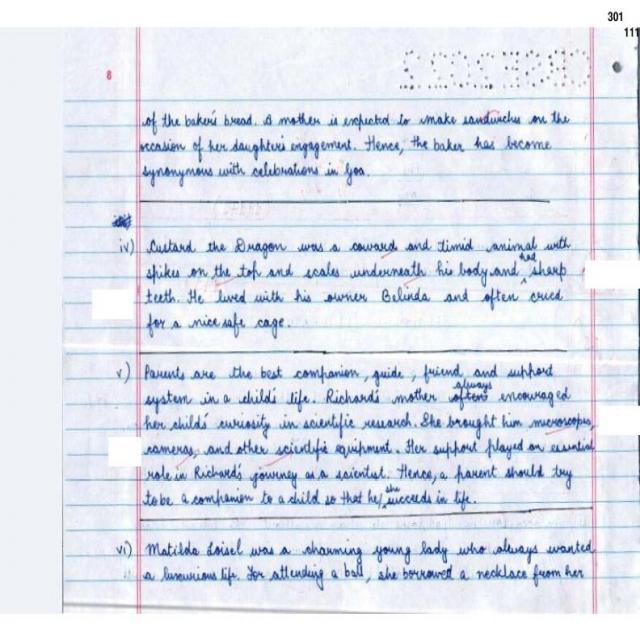 301
111
8
of the baker's bread. A mother is expected to make sandwiches on the
occasion of her daughter's engagement. Hence, the baker has become
synonymous with celebrations in Goa.
iv) Custard the Dragon was a coward and timid animal with
spikes on the top and scales underneath his body and had sharp
teeth. He lived with his owner Belinda and often cried
for a nice safe cage.
v) Parents are the best companion, guide, friend and support
system in a child's life. Richard's mother always encouraged
her child's curiosity in scientific research. She brought him microscopes,
cameras, and other scientific equipment. Her support played an essential
role in Richard's journey as a scientist. Hence, a parent should try
to be a companion to a child so that he/she succeeds in life.
vi) Matilda Loisel was a charming young lady who always wanted
a luxurious life. For attending a ball, she borrowed a necklace from her